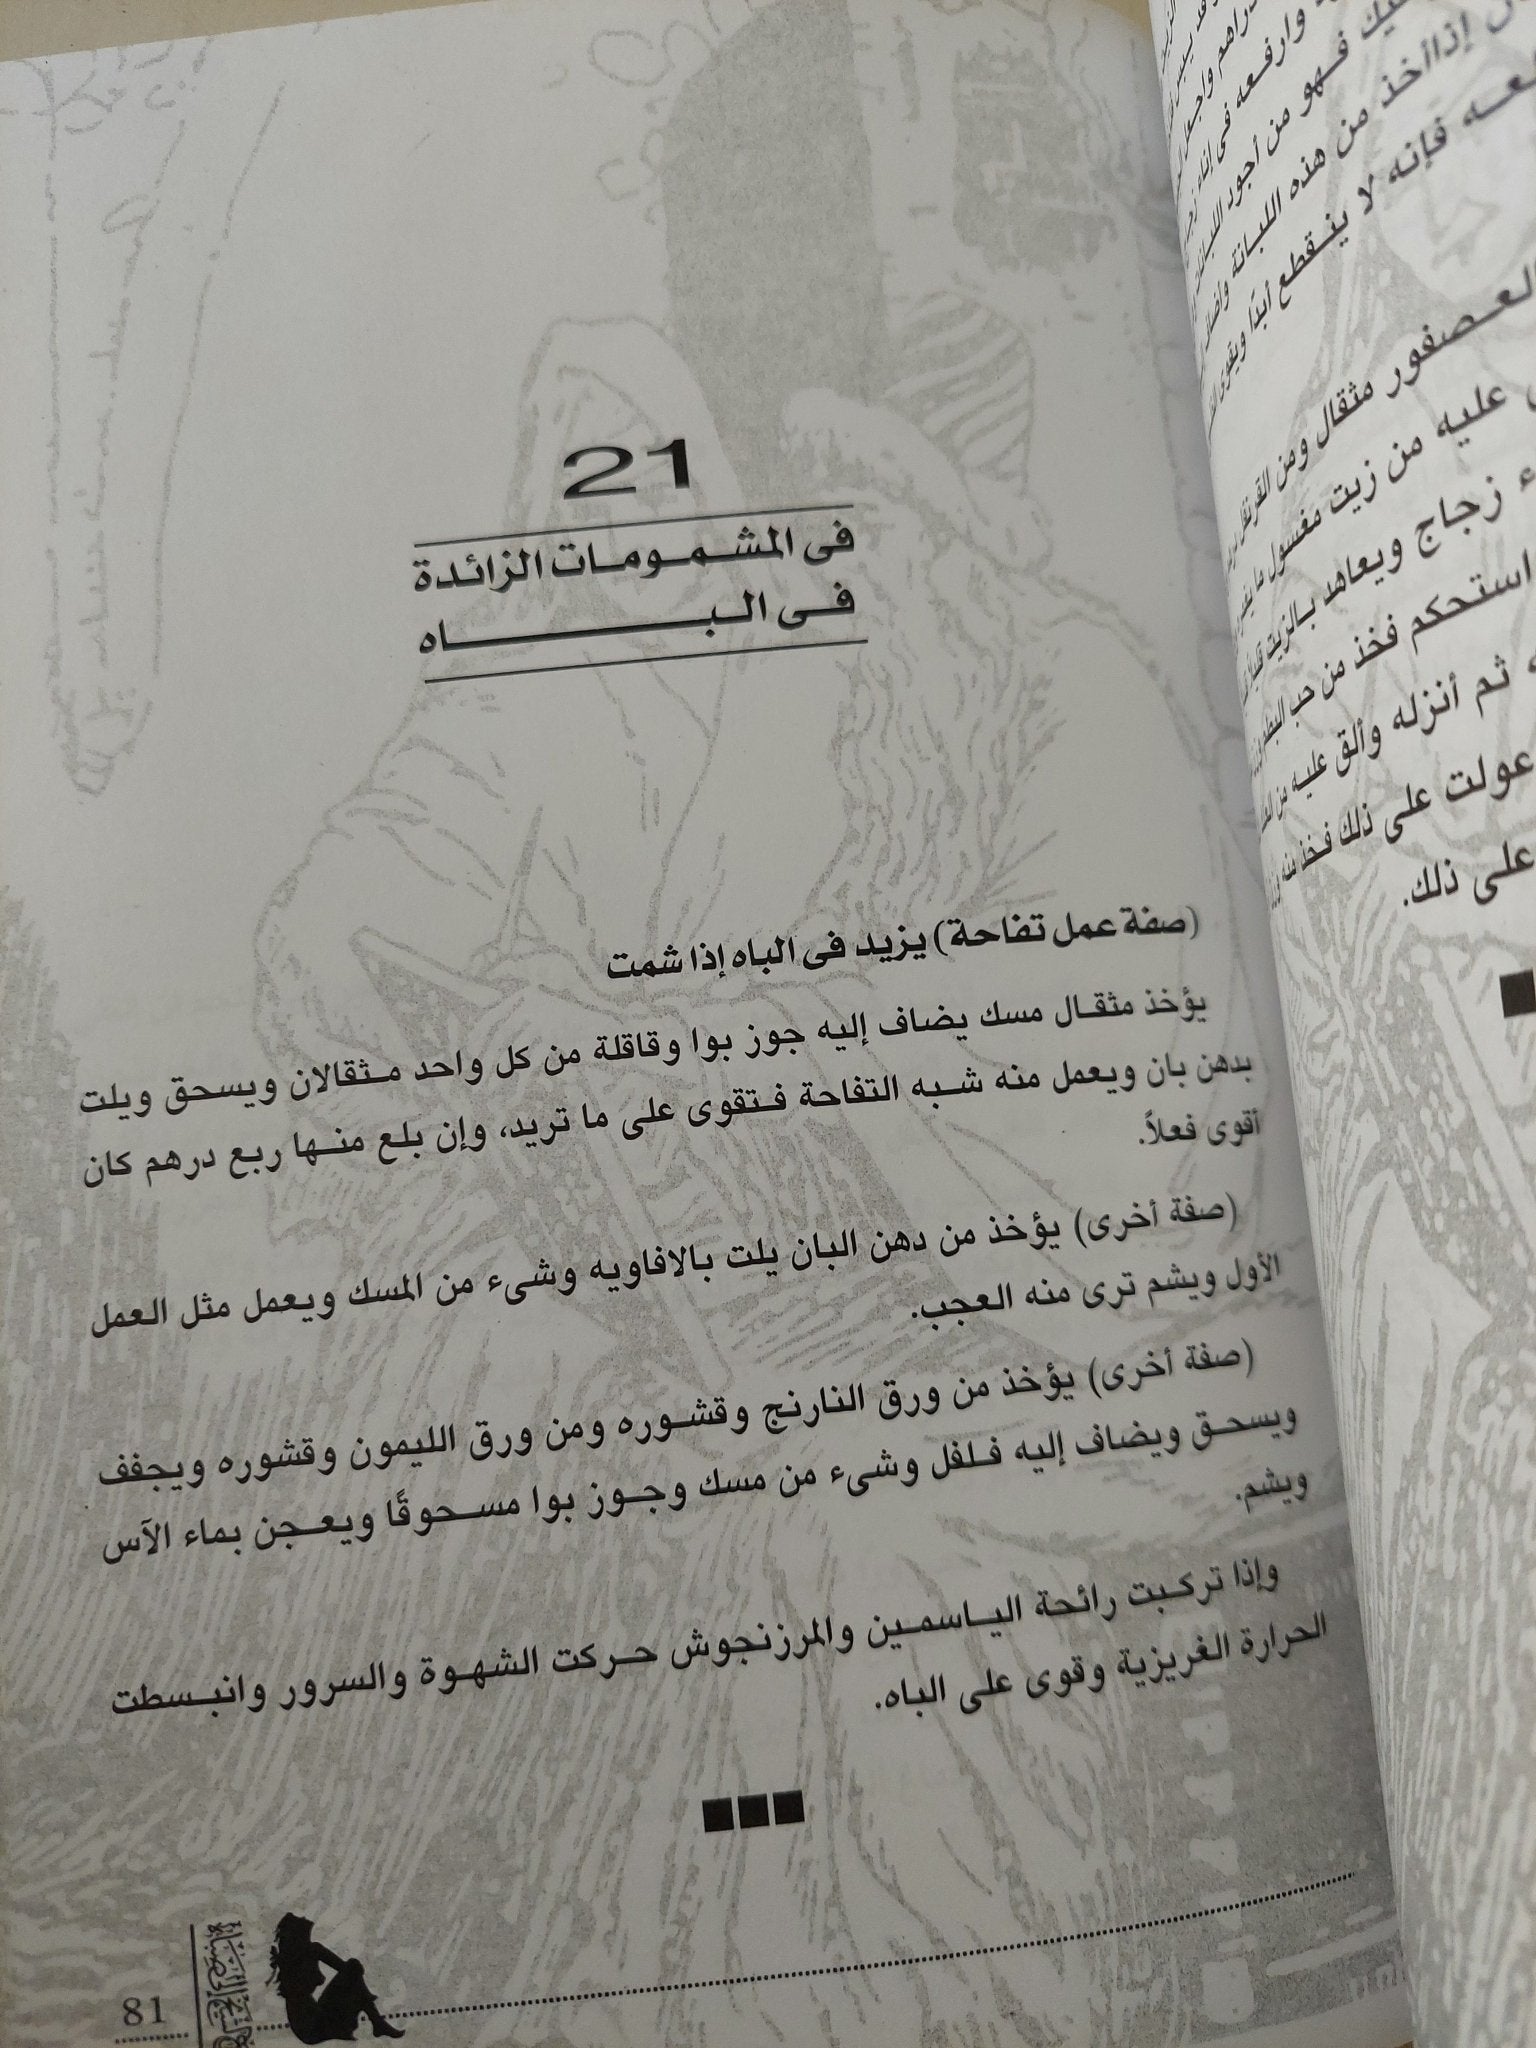 21
فى المشمومات الزائدة
فى الباه
(صفة عمل تفاحة) يزيد فى الباه إذا شمت
يؤخذ مثقال مسك يضاف إليه جوز بوا وقاقلة من كل واحد مثقالان ويسحق ويلت
بدهن بان ويعمل منه شبه التفاحة فتقوى على ما تريد، وإن بلع منها ربع درهم كان
أقوى فعلاً.
(صفة أخرى) يؤخذ من دهن البان يلت بالافاويه وشىء من المسك ويعمل مثل العمل
الأول ويشم ترى منه العجب.
(صفة أخرى) يؤخذ من ورق النارنج وقشوره ومن ورق الليمون وقشوره ويجفف
ويسحق ويضاف إليه فلفل وشىء من مسك وجوز بوا مسحوقًا ويعجن بماء الآس
ويشم.
وإذا تركبت رائحة الياسمين والمرزنجوش حركت الشهوة والسرور وانبسطت
الحرارة الغريزية وقوى على الباه.
81
وارفعه فى إناء
فهو من أجود
إذاأخذ من هذه اللبانة
فإنه لا ينقطع أبدًا ويقوى
العصفور مثقال ومن القرنفل
عليه من زيت مغسول ما
زجاج ويعاهد بالزيت
استحكم فخذ من حب البطم
ثم أنزله وألق عليه من
عولت على ذلك فخذ منه
على ذلك.